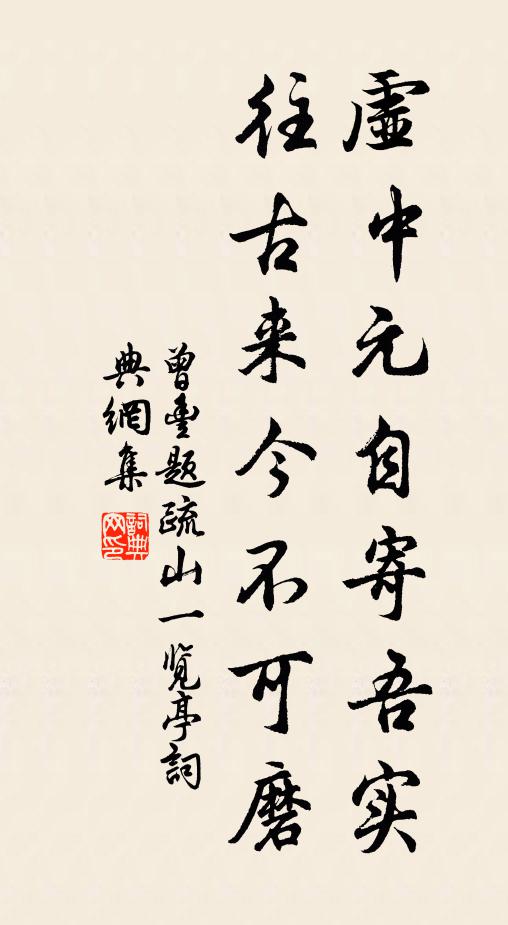 虛中元自寄吾实
往古来今不可磨
曾豊题疏山一览亭词
典網集
詞典
网印